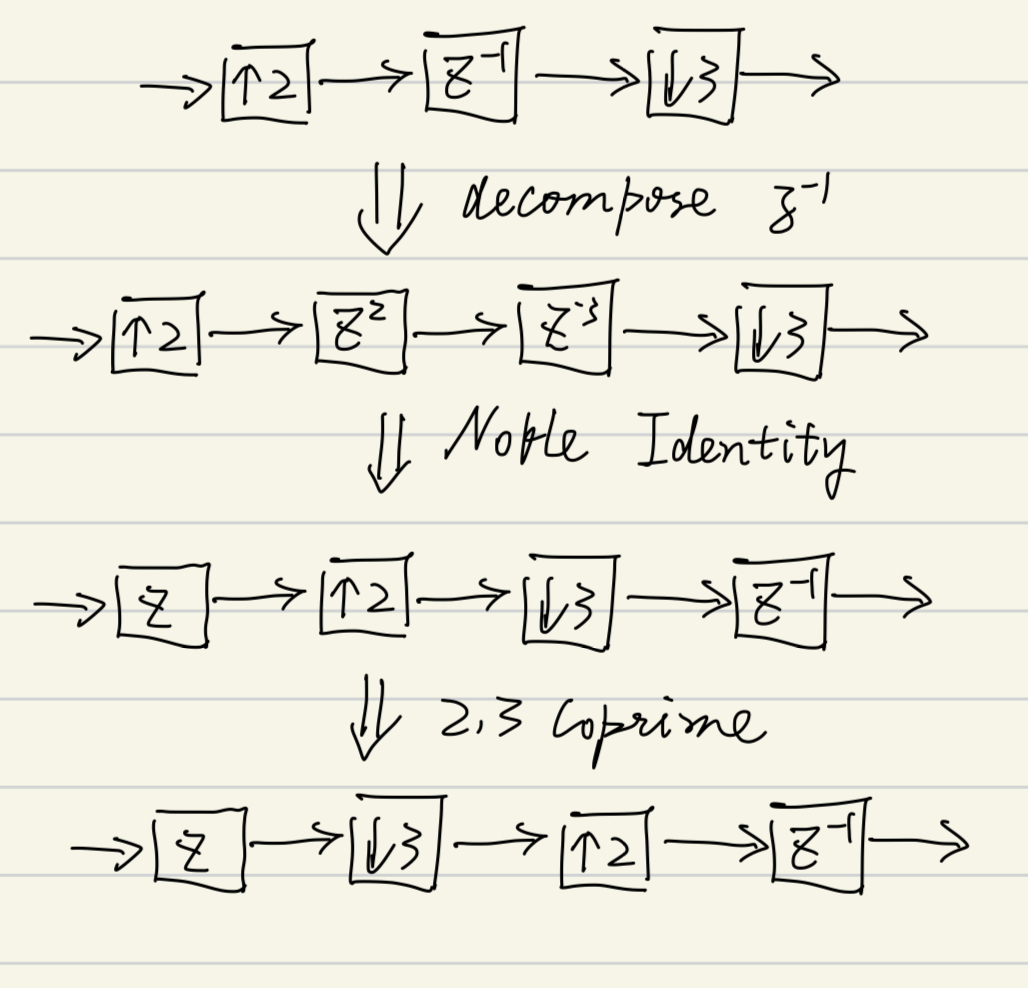 → ↑2 → z⁻¹ → ↓3 →
⇓ decompose z⁻¹
→ ↑2 → z² → z⁻³ → ↓3 →
⇓ Noble Identity
→ z → ↑2 → ↓3 → z⁻¹ →
⇓ 2,3 Coprime
→ z → ↓3 → ↑2 → z⁻¹ →